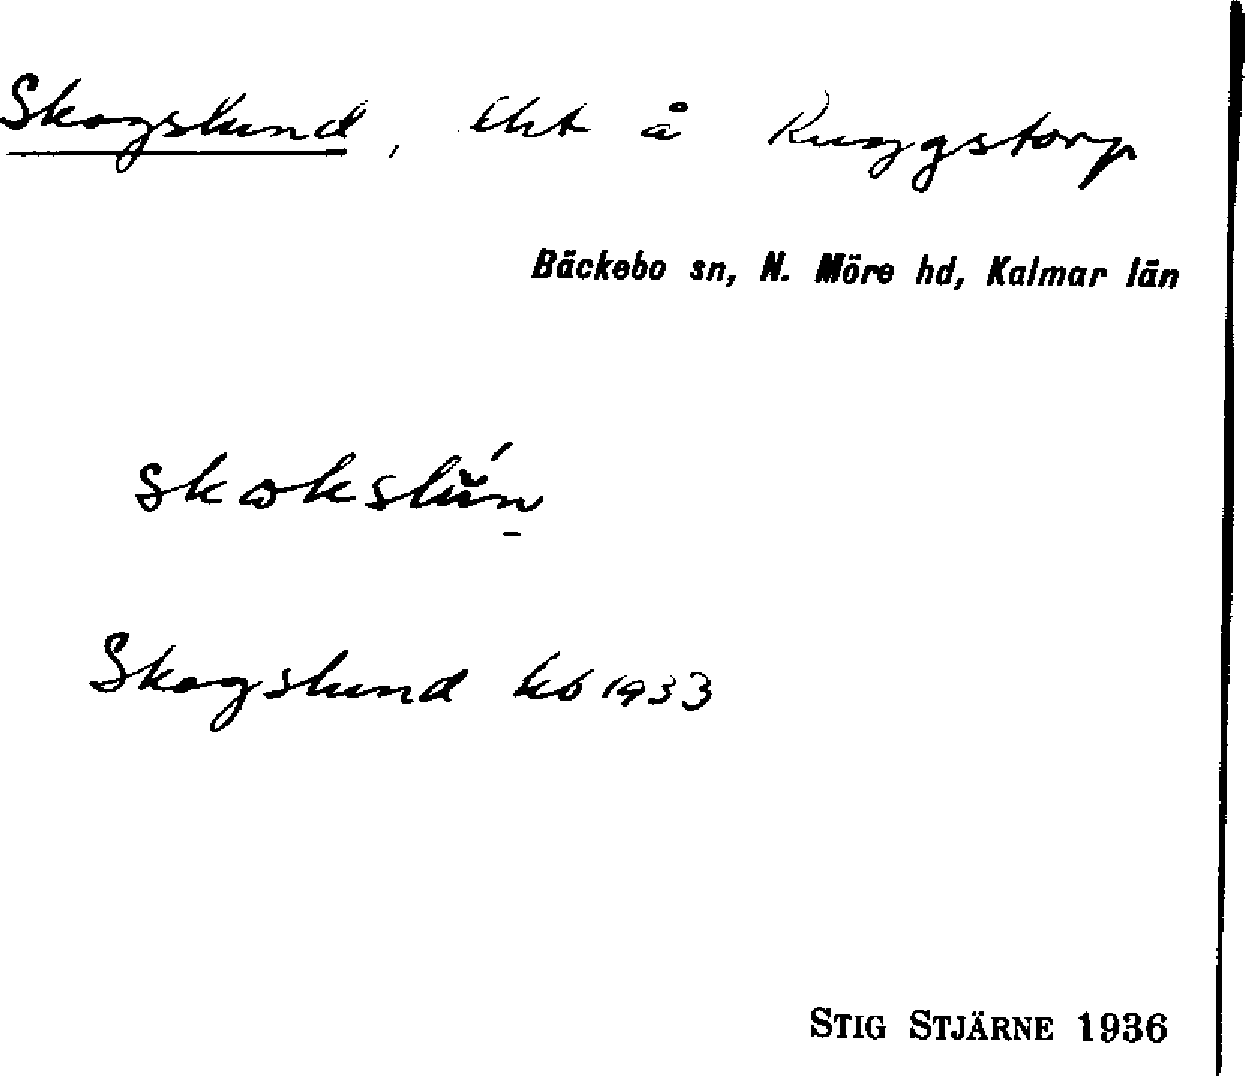 Skogslund, lht å Ruggstorp
Bäckebo sn, N. Möre hd, Kalmar län
Skogslund kb 1933
STIG STJÄRNE 1936